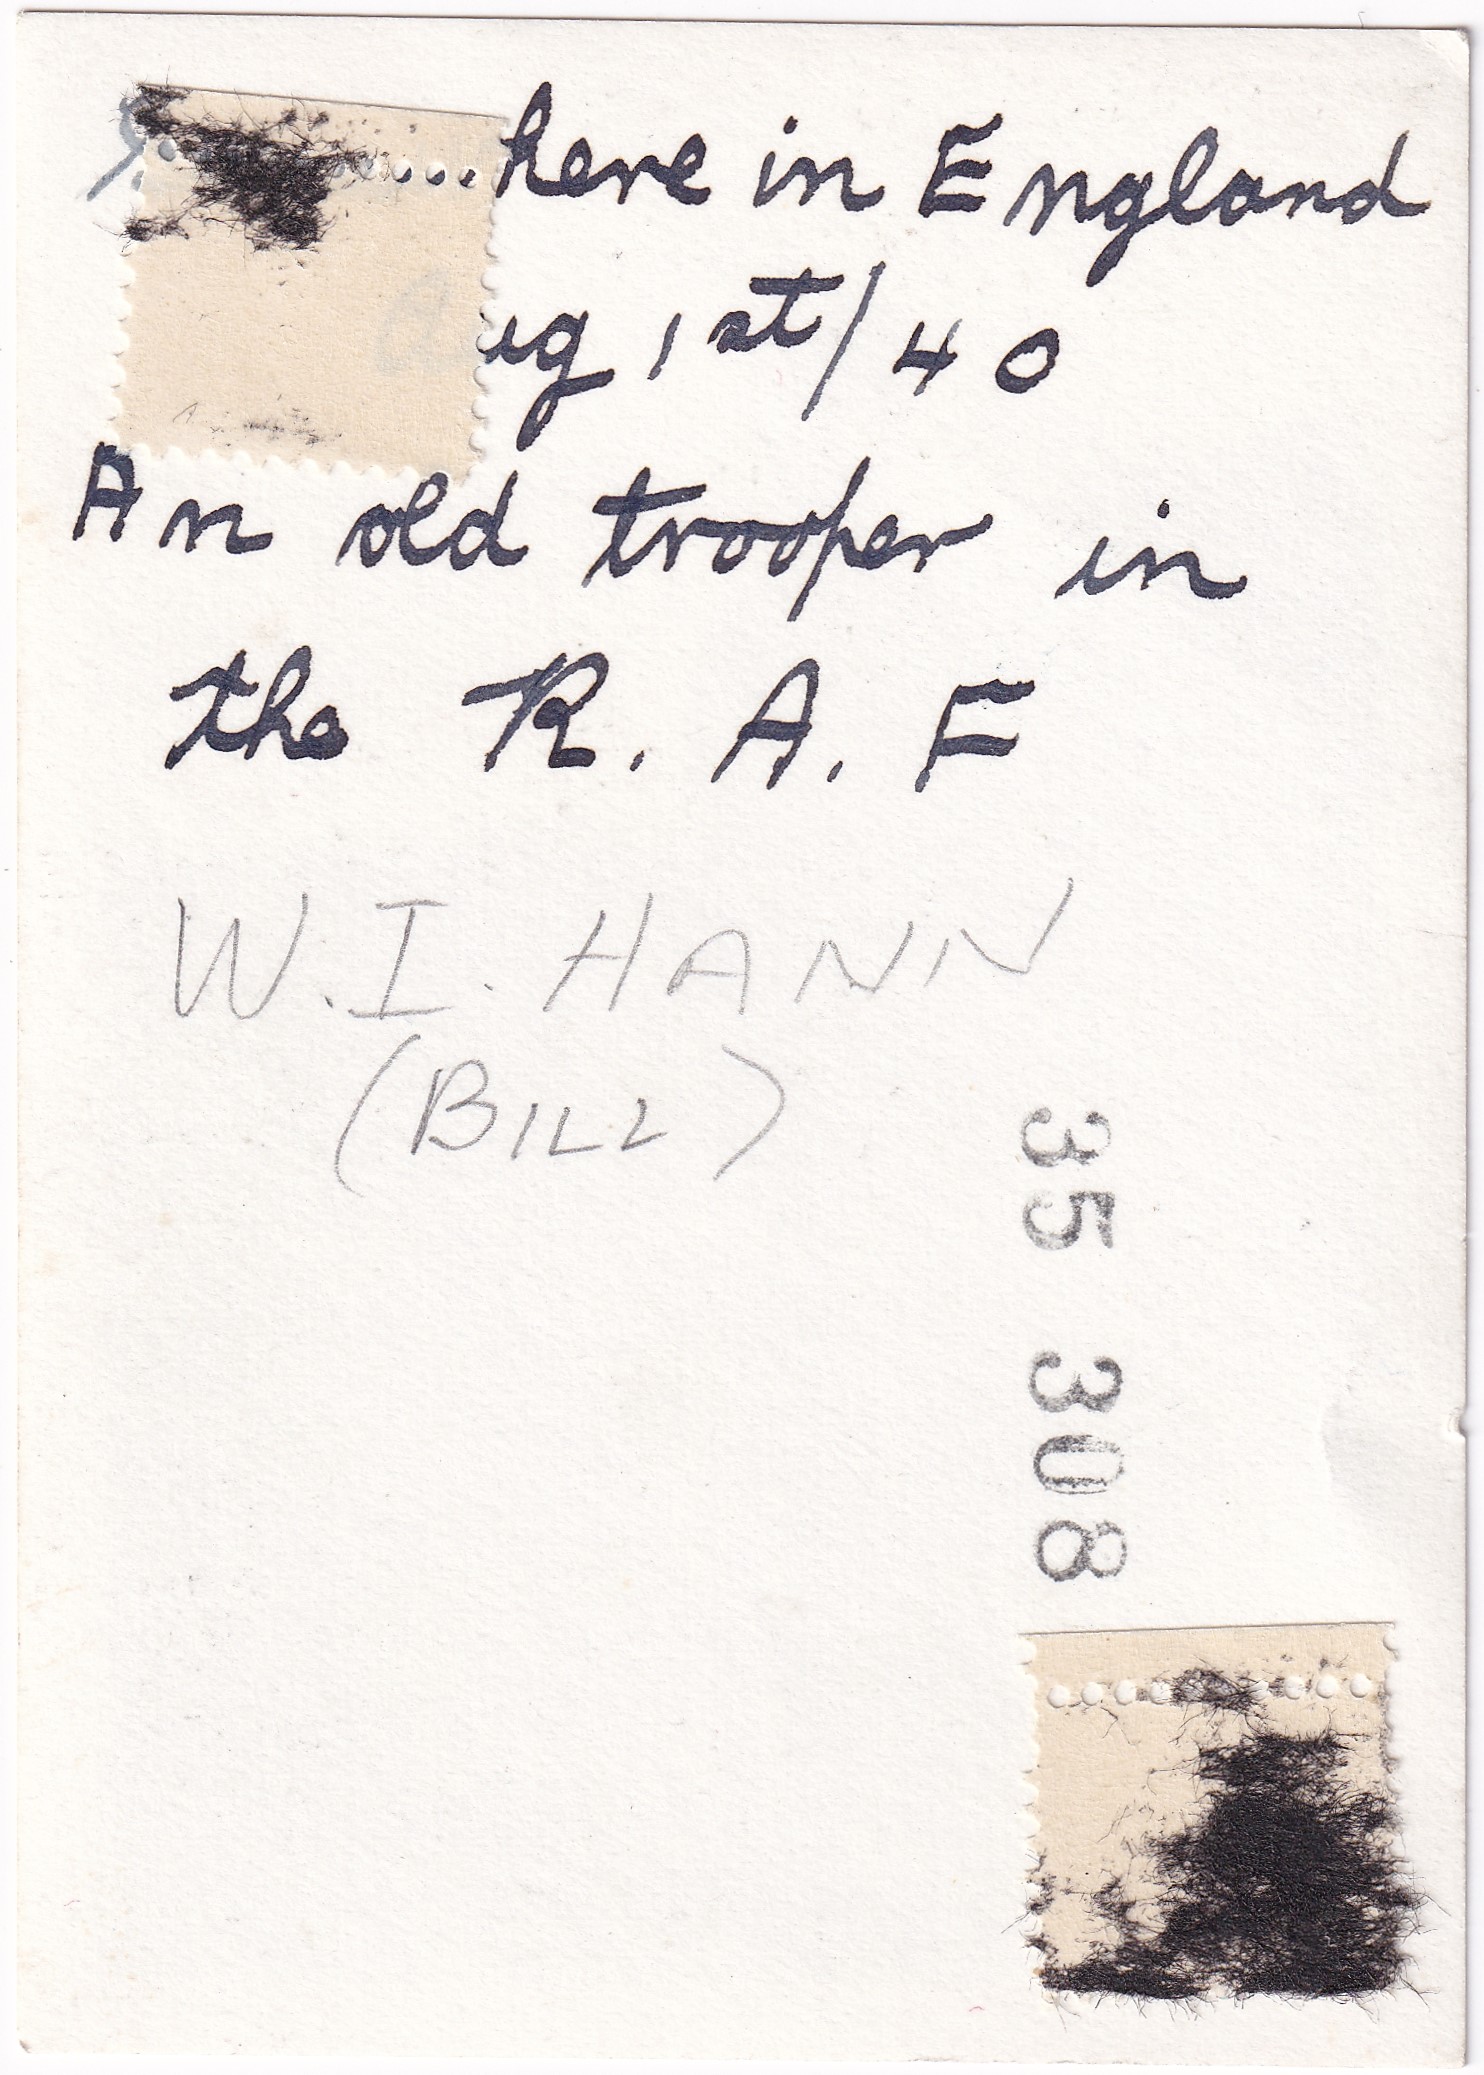 here in England
Aug 1st/40
An old trooper in
the R. A. F
W. I. HANN
(BILL)
35 308